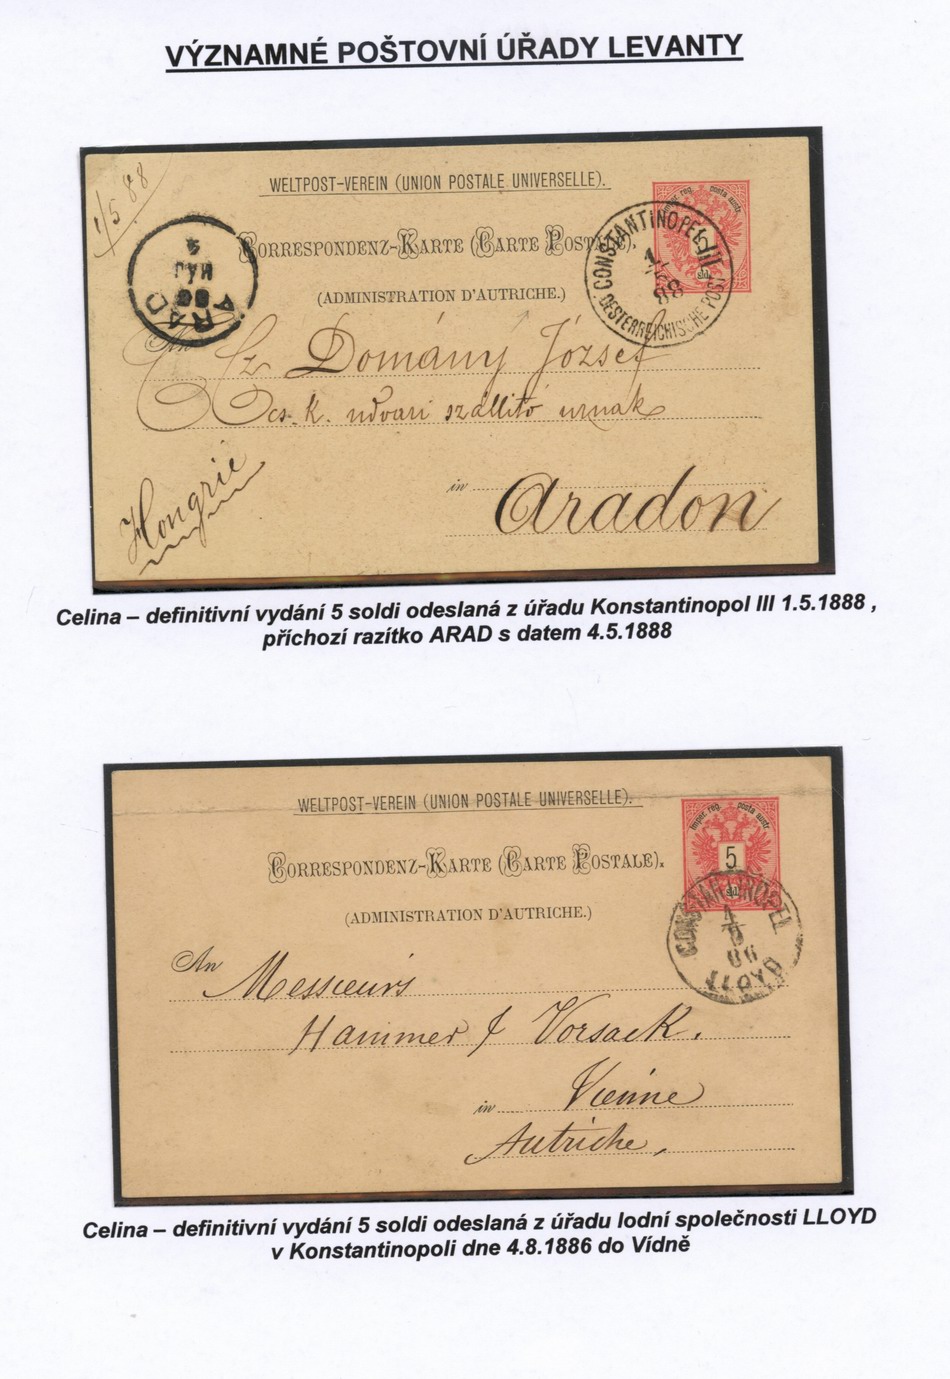 VÝZNAMNÉ POŠTOVNÍ ÚŘADY LEVANTY
1/5 88
WELTPOST-VEREIN (UNION POSTALE UNIVERSELLE).
Imper. reg. posta austr.
CORRESPONDENZ-KARTE (CARTE POSTALE).
(ADMINISTRATION D'AUTRICHE.)
CONSTANTINOPEL III
1/5
88
OESTERREICHISCHE POST
sld.
ARAD
MAJ
An Domány József
cs. k. udvari szállitó urnak
in Aradon
Hongrie
Celina – definitivní vydání 5 soldi odeslaná z úřadu Konstantinopol III 1.5.1888 ,
příchozí razítko ARAD s datem 4.5.1888
WELTPOST-VEREIN (UNION POSTALE UNIVERSELLE).
Imper. reg. posta austr.
5
sld.
CORRESPONDENZ-KARTE (CARTE POSTALE).
(ADMINISTRATION D'AUTRICHE.)
CONSTANTINOPEL
86
LLOYD
An Messieurs
Hammer & Vorsack.
in Vienne
Autriche,
Celina – definitivní vydání 5 soldi odeslaná z úřadu lodní společnosti LLOYD
v Konstantinopoli dne 4.8.1886 do Vídně